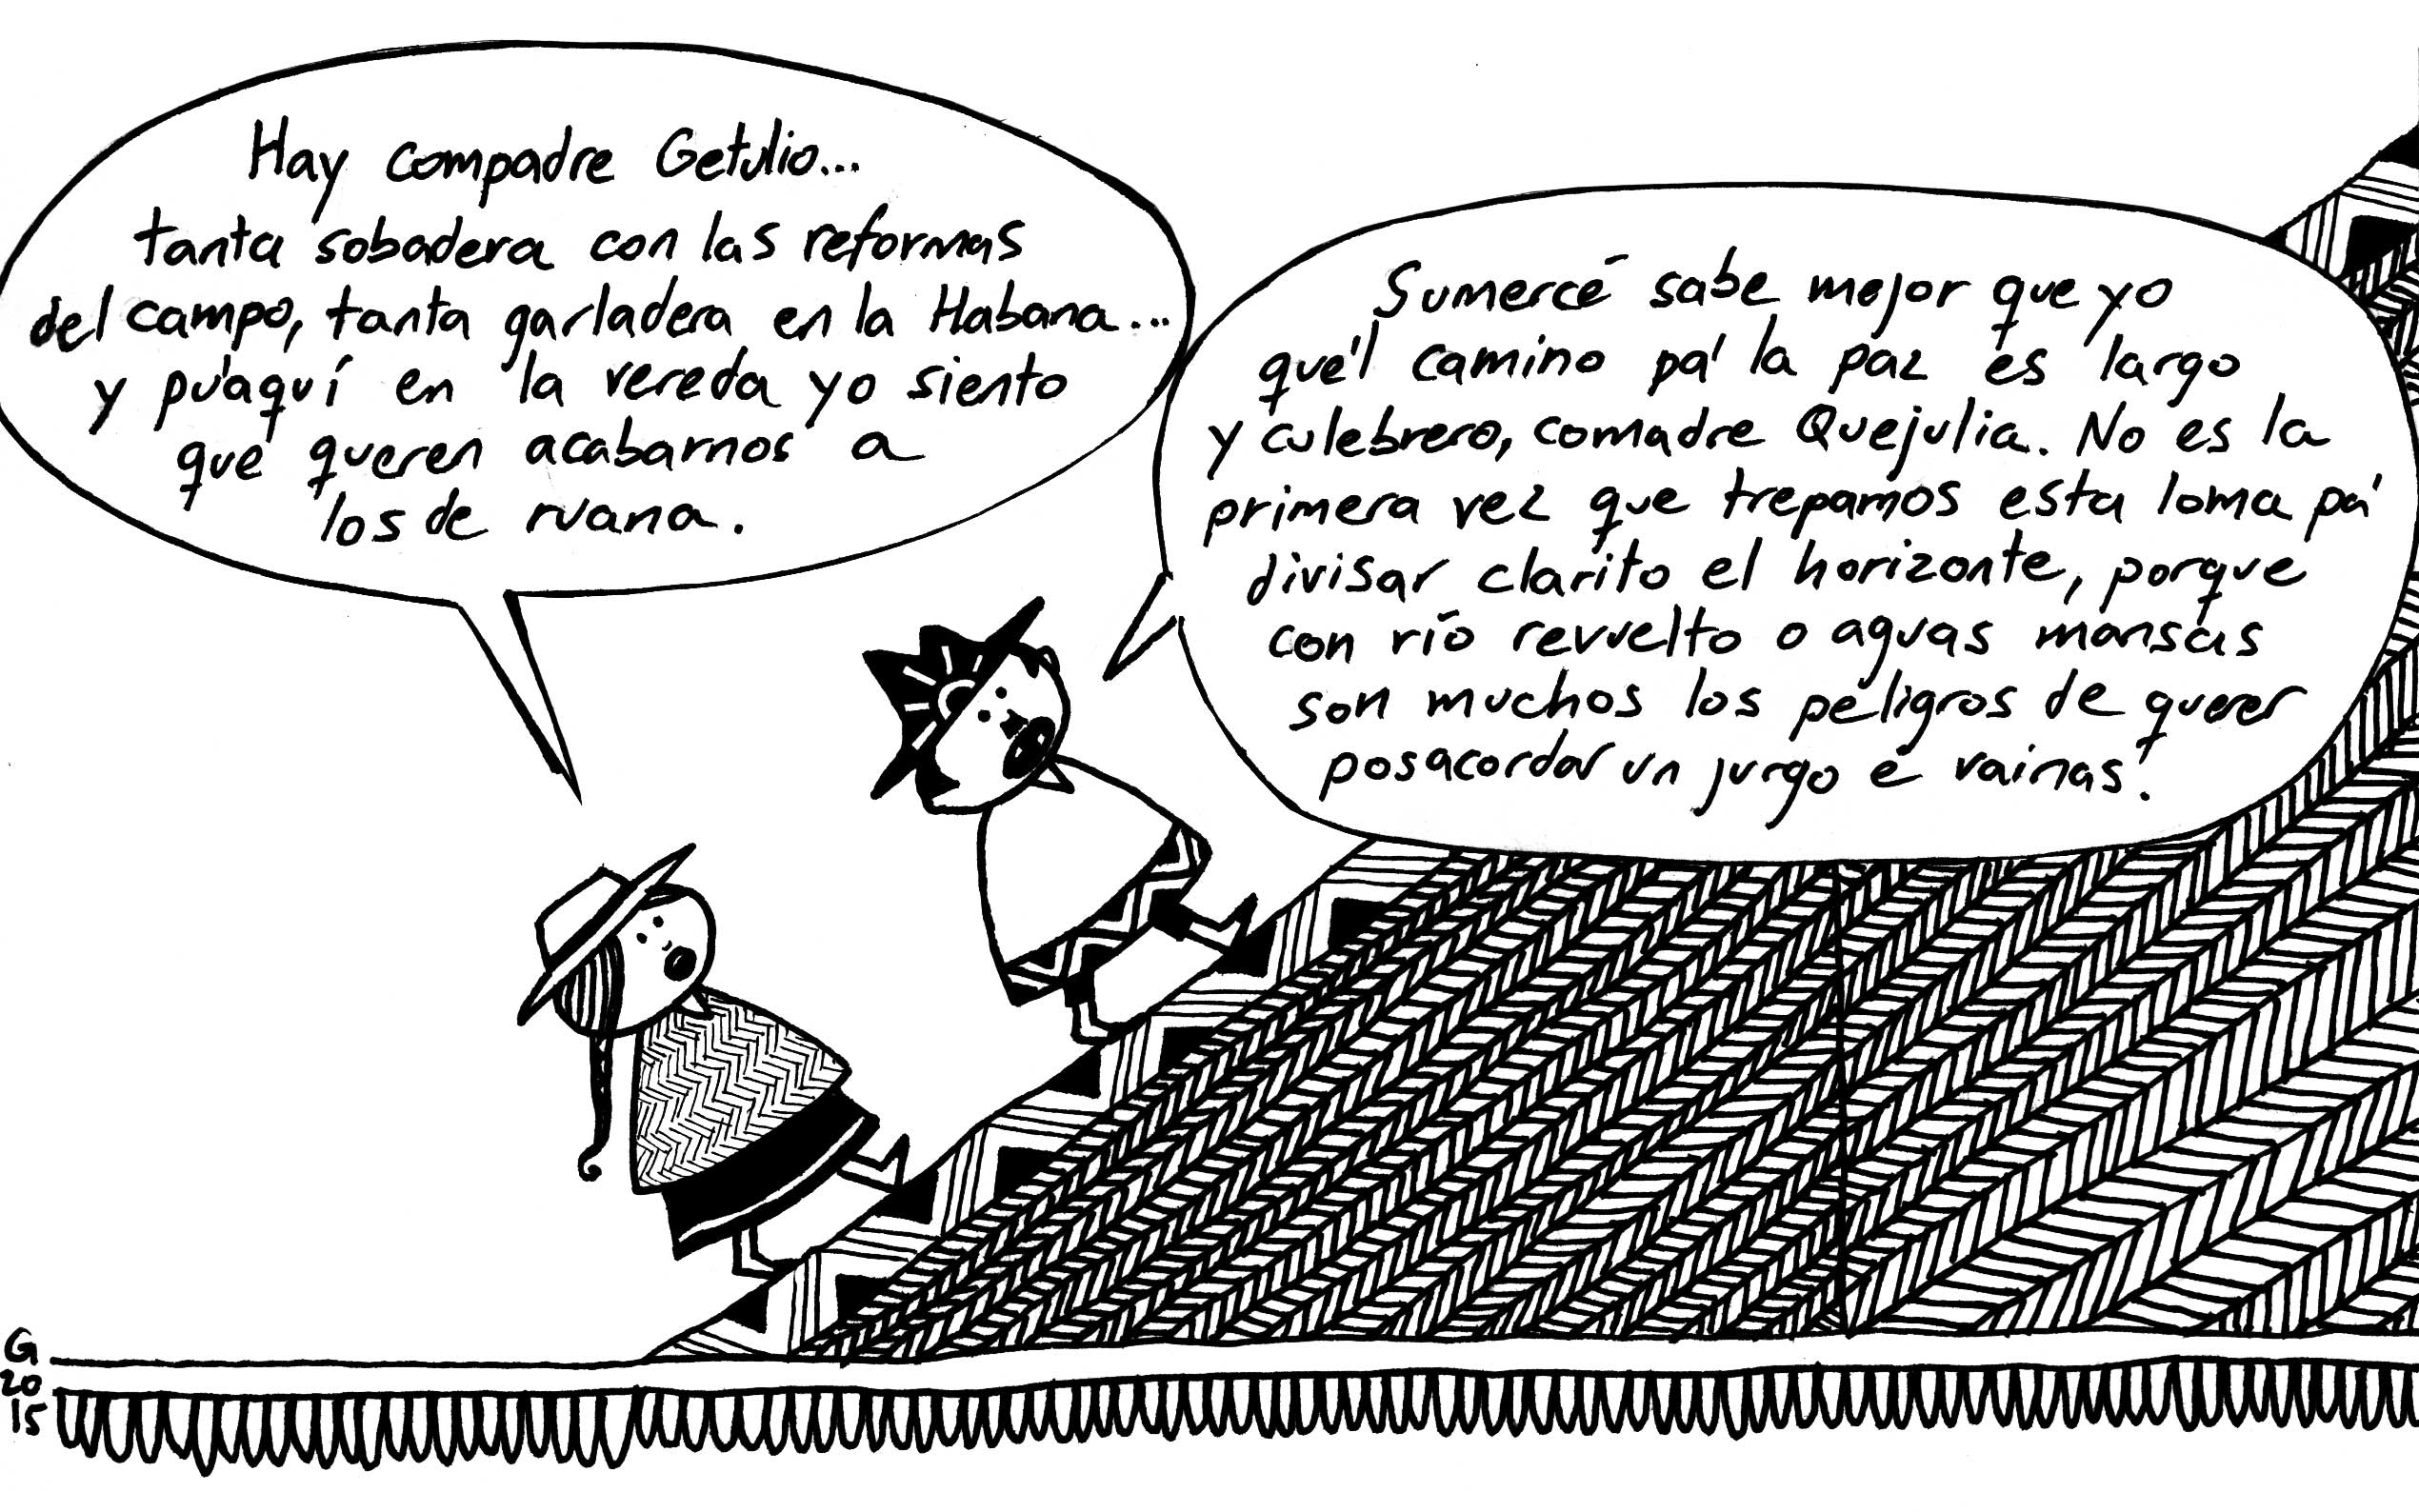 Hay compadre Getulio...
tanta sobadera con las reformas
del campo, tanta garladera en la Habana...
y pu'aquí en la vereda yo siento
que queren acabarnos a
los de ruana.
Sumercé sabe mejor que yo
que'l camino pa' la paz es largo
y culebrero, comadre Quejulia. No es la
primera vez que trepamos esta loma pa'
divisar clarito el horizonte, porque
con río revuelto o aguas mansas
son muchos los peligros de querer
posacordar un jurgo e' vainas!
G
20
15